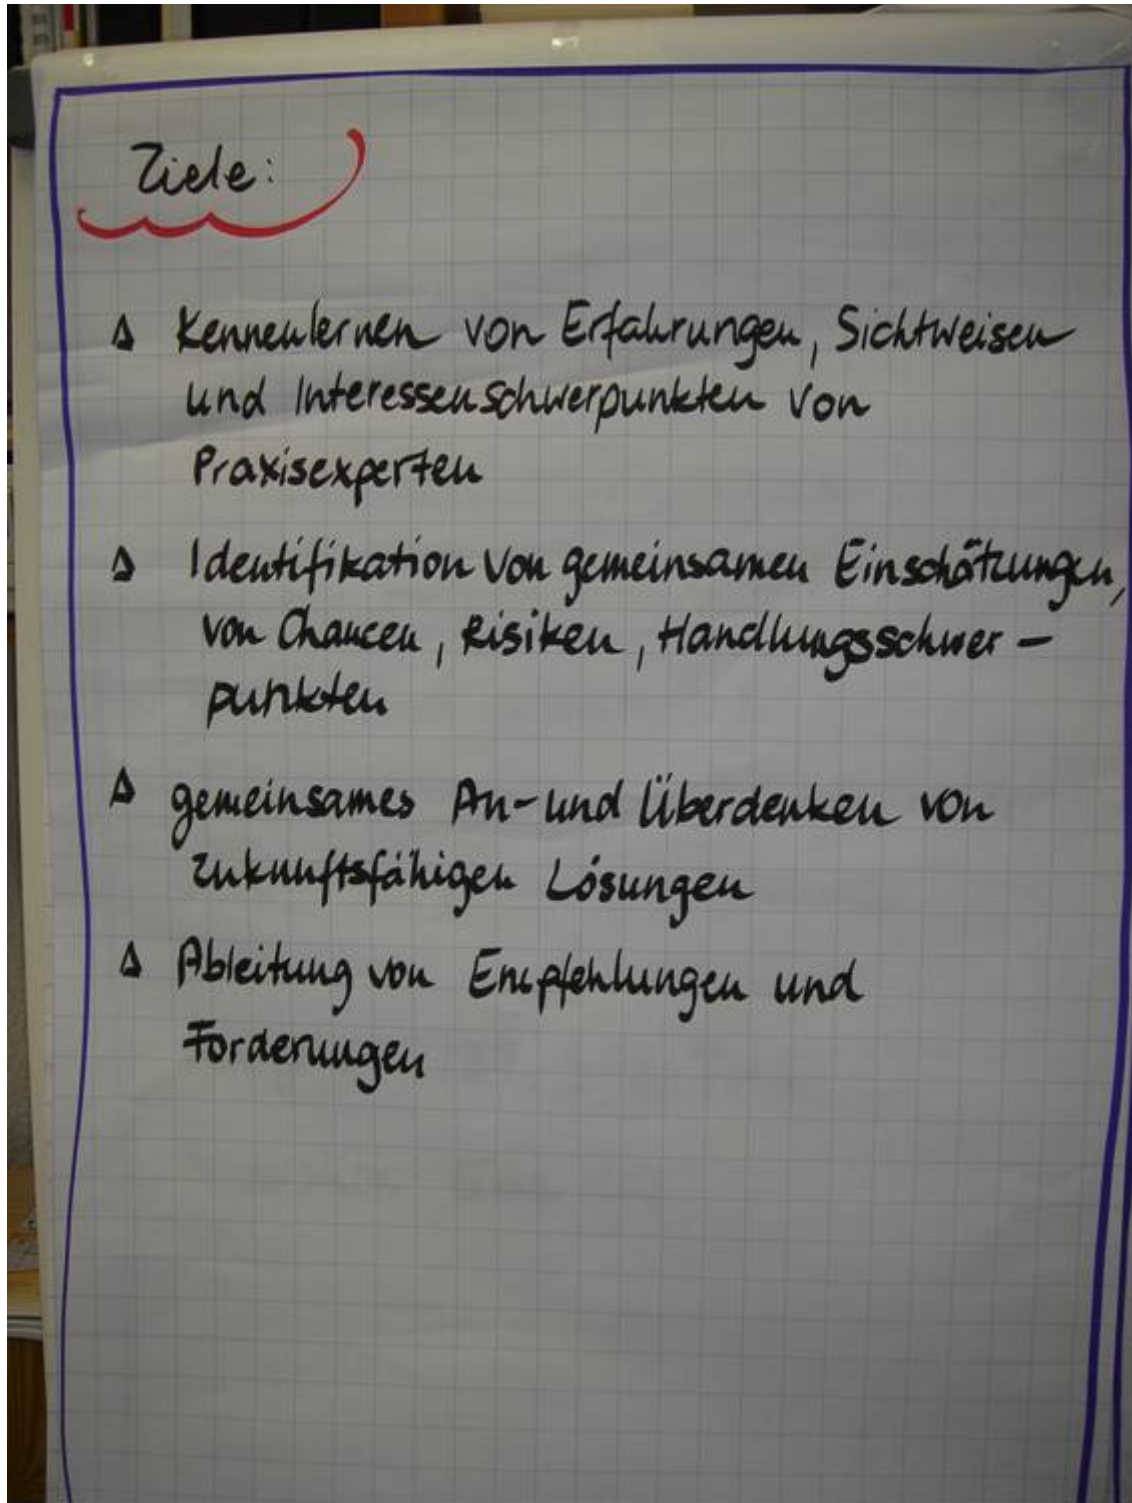 Ziele:
Δ Kennenlernen von Erfahrungen, Sichtweisen
und Interessenschwerpunkten von
Praxisexperten
Δ Identifikation von gemeinsamen Einschätzungen,
von Chancen, Risiken, Handlungsschwer-
punkten
Δ gemeinsames An- und Überdenken von
zukunftsfähigen Lösungen
Δ Ableitung von Empfehlungen und
Forderungen